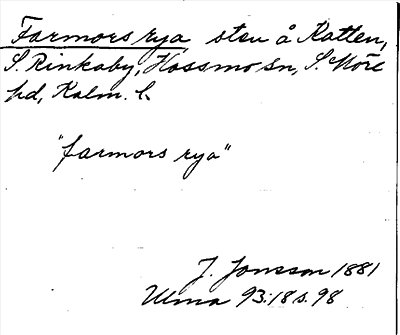 Farmors rya sten å Katten,
S. Rinkaby, Hossmo sn, S. Möre
hd, Kalm. l.
"farmors rya"
J. Jonsson 1881
Uma 93:18 s. 98